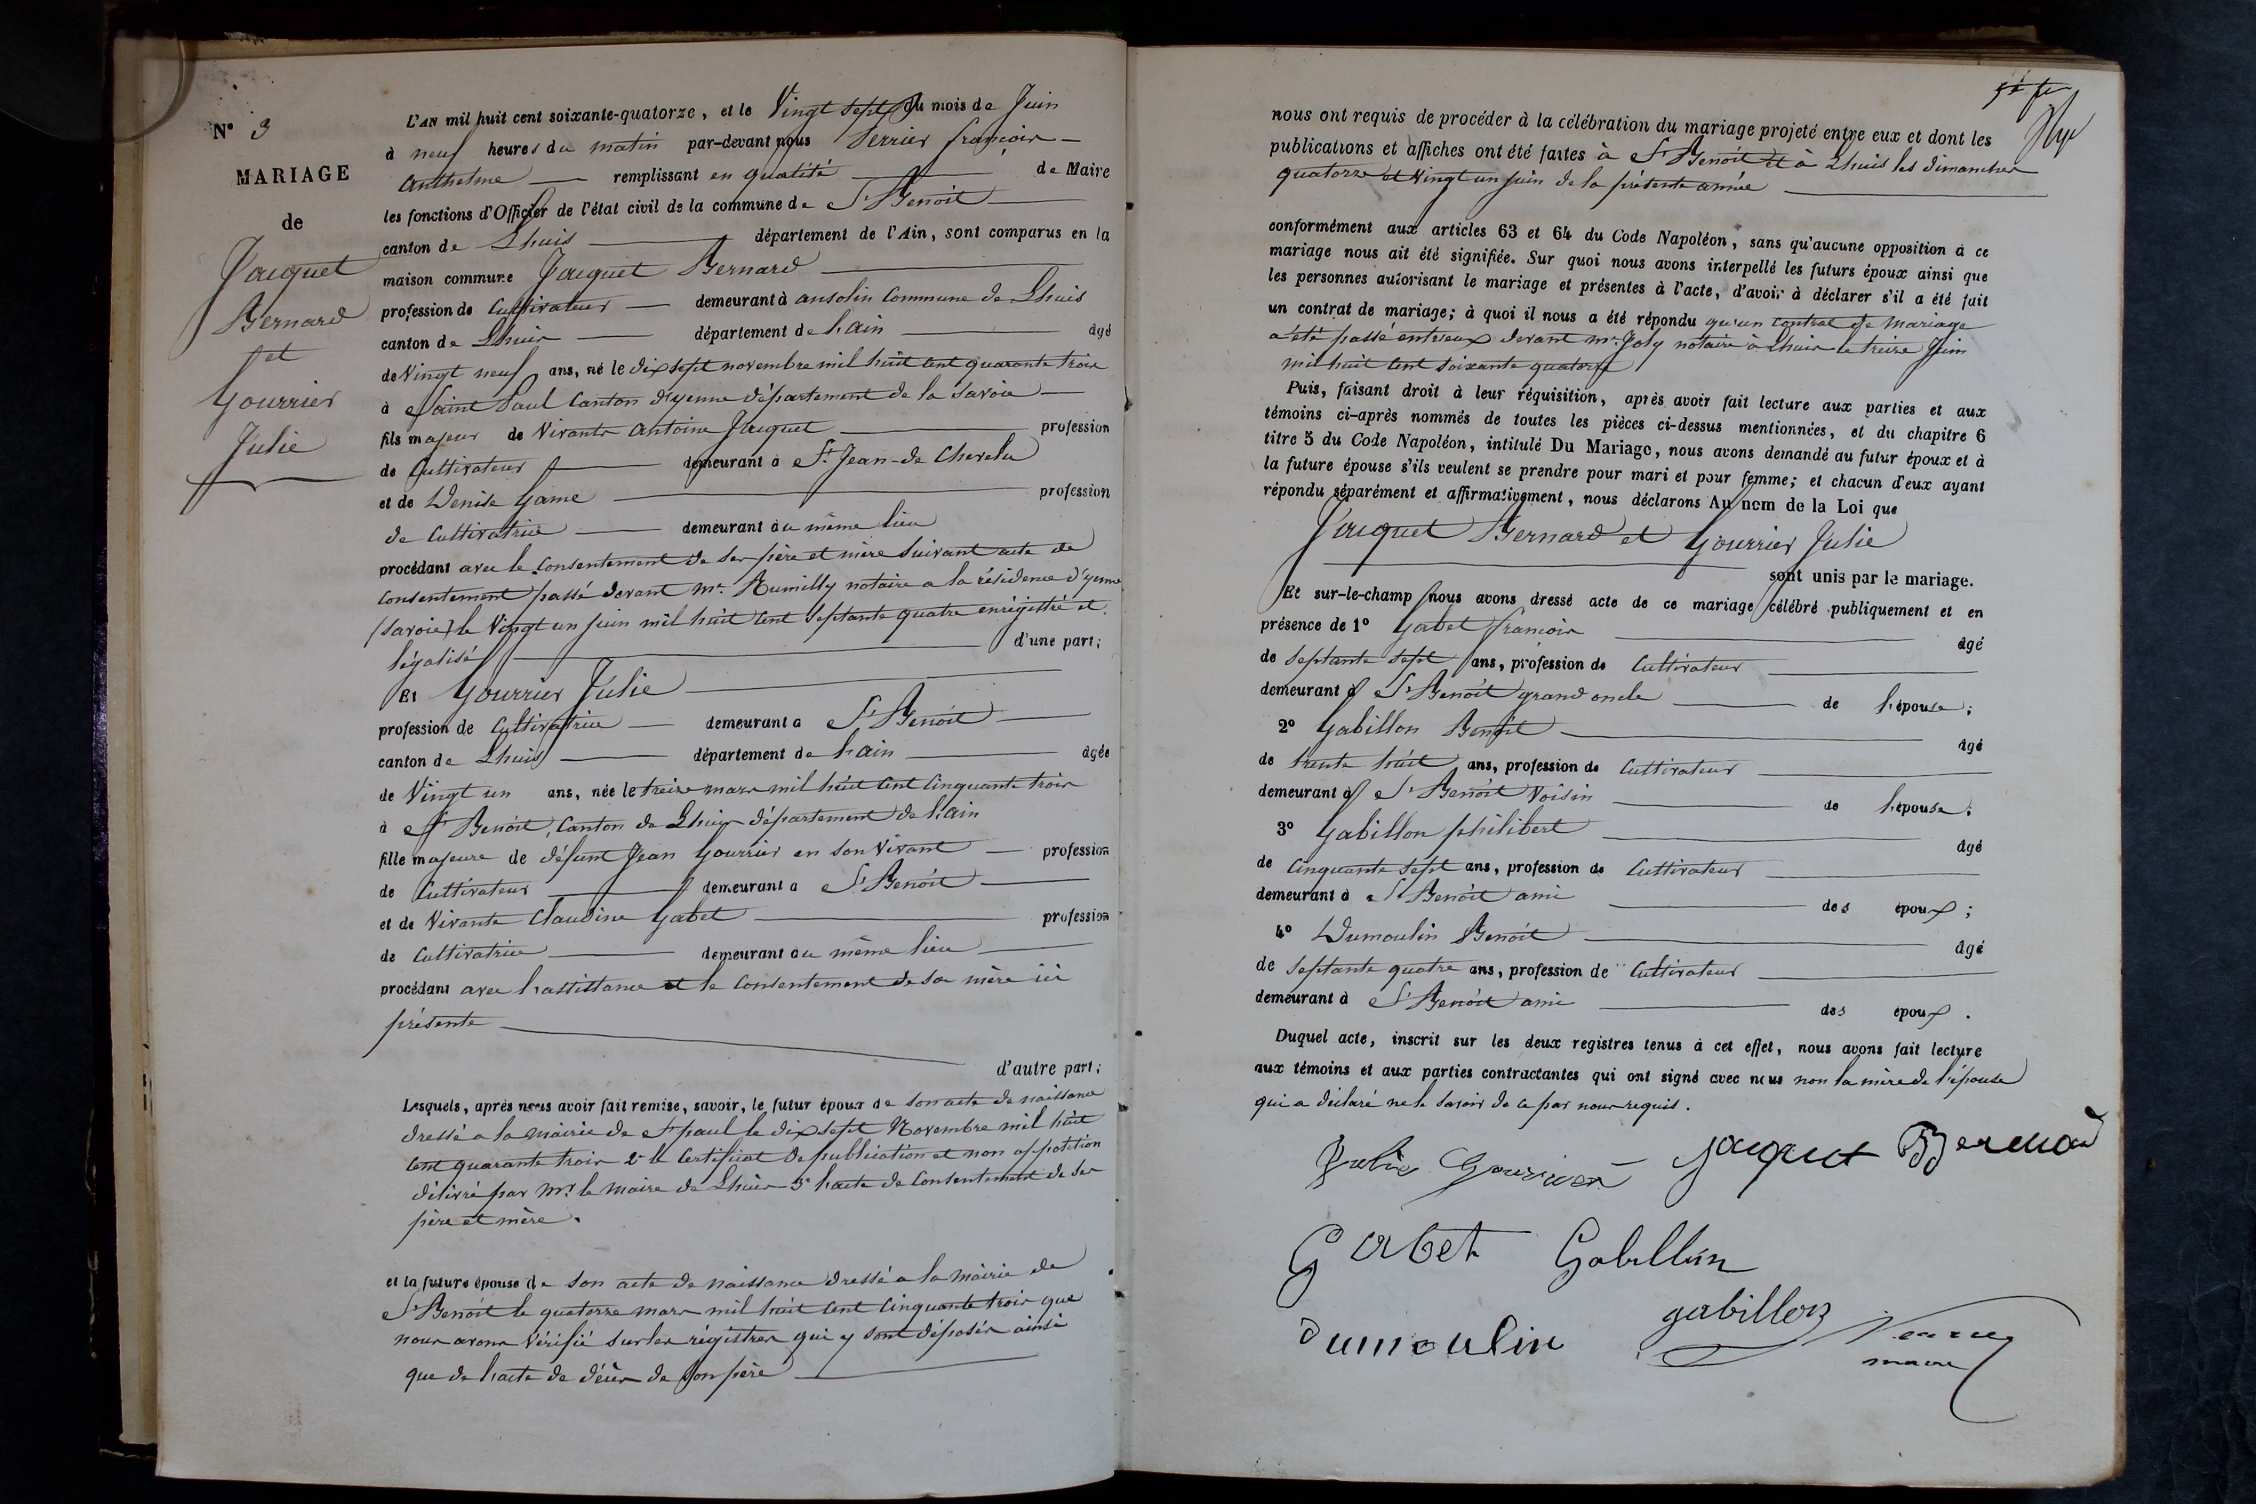 N° 3
MARIAGE
de
Jacquet
Bernard
et
Gourrier
Julie
L'AN mil huit cent soixante-quatorze, et le Vingt sept du mois de Juin
à neuf heures du matin par-devant nous Perrier françois
anthelme remplissant en qualité de Maire
les fonctions d'Officier de l'état civil de la commune de St Benoit
canton de Lhuis département de l'Ain, sont comparus en la
maison commune Jacquet Bernard
profession de Cultivateur demeurant à ansolin Commune de Lhuis
canton de Lhuis département de l'ain âgé
de Vingt neuf ans, né le dix sept novembre mil huit cent quarante trois
à Saint Paul Canton d'yenne département de la Savoie
fils majeur de Vivants antoine Jacquet profession
de Cultivateur demeurant à St Jean-de Chevelu
et de Denise Game profession
de Cultivatrice demeurant au même lieu
procédant avec le Consentement de ses père et mère suivant acte de
Consentement passé devant Mr. Rumilly notaire a la résidence d'yenne
(Savoie) le Vingt un juin mil huit cent septante quatre enrégistré et
légalisé d'une part;
Et Gourrier Julie
profession de Cultivatrice demeurant a St Benoit
canton de Lhuis département de l'ain âgée
de Vingt un ans, née le treize mars mil huit cent cinquante trois
à St Benoit, Canton de Lhuis département de l'ain
fille majeure de défunt Jean Gourrier en son Vivant profession
de Cultivateur demeurant a St Benoit
et de Vivante Claudine Gabet profession
de Cultivatrice demeurant au même lieu
procédant avec l'assistance et le Consentement de sa mère ici
présente
d'autre part;
Lesquels, après nous avoir fait remise, savoir, le futur époux de son acte de naissance
dressé a la mairie de St paul le dix sept Novembre mil huit
cent quarante trois 2° le Certificat de publication et non opposition
délivré par Mr le Maire de Lhuis 3° l'acte de Consentement de ses
père et mère.
et la future épouse de son acte de naissance dressé a la mairie de
St Benoit le quatorze mars mil huit cent cinquante trois que
nous avons Vérifié sur les régistres qui y sont déposés ainsi
que de l'acte de décès de son père
nous ont requis de procéder à la célébration du mariage projeté entre eux et dont les
publications et affiches ont été faites à St Benoit et à Lhuis les dimanches
quatorze et Vingt un juin de la présente année
conformément aux articles 63 et 64 du Code Napoléon, sans qu'aucune opposition à ce
mariage nous ait été signifiée. Sur quoi nous avons interpellé les futurs époux ainsi que
les personnes autorisant le mariage et présentes à l'acte, d'avoir à déclarer s'il a été fait
un contrat de mariage; à quoi il nous a été répondu qu'un contrat de mariage
a été passé entreeux devant mr. Joly notaire à Lhuis le treize Juin
mil huit cent soixante quatorze
Puis, faisant droit à leur réquisition, après avoir fait lecture aux parties et aux
témoins ci-après nommés de toutes les pièces ci-dessus mentionnées, et du chapitre 6
titre 5 du Code Napoléon, intitulé Du Mariage, nous avons demandé au futur époux et à
la future épouse s'ils veulent se prendre pour mari et pour femme; et chacun d'eux ayant
répondu séparément et affirmativement, nous déclarons Au nom de la Loi que
Jacquet Bernard et Gourrier Julie
sont unis par le mariage.
Et sur-le-champ nous avons dressé acte de ce mariage célébré publiquement et en
présence de 1° Gabet françois âgé
de septante sept ans, profession de Cultivateur
demeurant à St Benoit grand oncle de l'épouse;
2° Gabillon Benoit âgé
de trente huit ans, profession de Cultivateur
demeurant à St Benoit Voisin de l'épouse;
3° Gabillon philibert âgé
de cinquante sept ans, profession de Cultivateur
demeurant à St Benoit ami des époux;
4° Dumoulin Benoit âgé
de septante quatre ans, profession de Cultivateur
demeurant à St Benoit ami des époux.
Duquel acte, inscrit sur les deux registres tenus à cet effet, nous avons fait lecture
aux témoins et aux parties contractantes qui ont signé avec nous non la mère de l'épouse
qui a déclaré ne le savoir de ce par nous requis.
Julie Gourrier Jacquet Bernard
Gabet Gabillon
dumoulin gabillon
maire